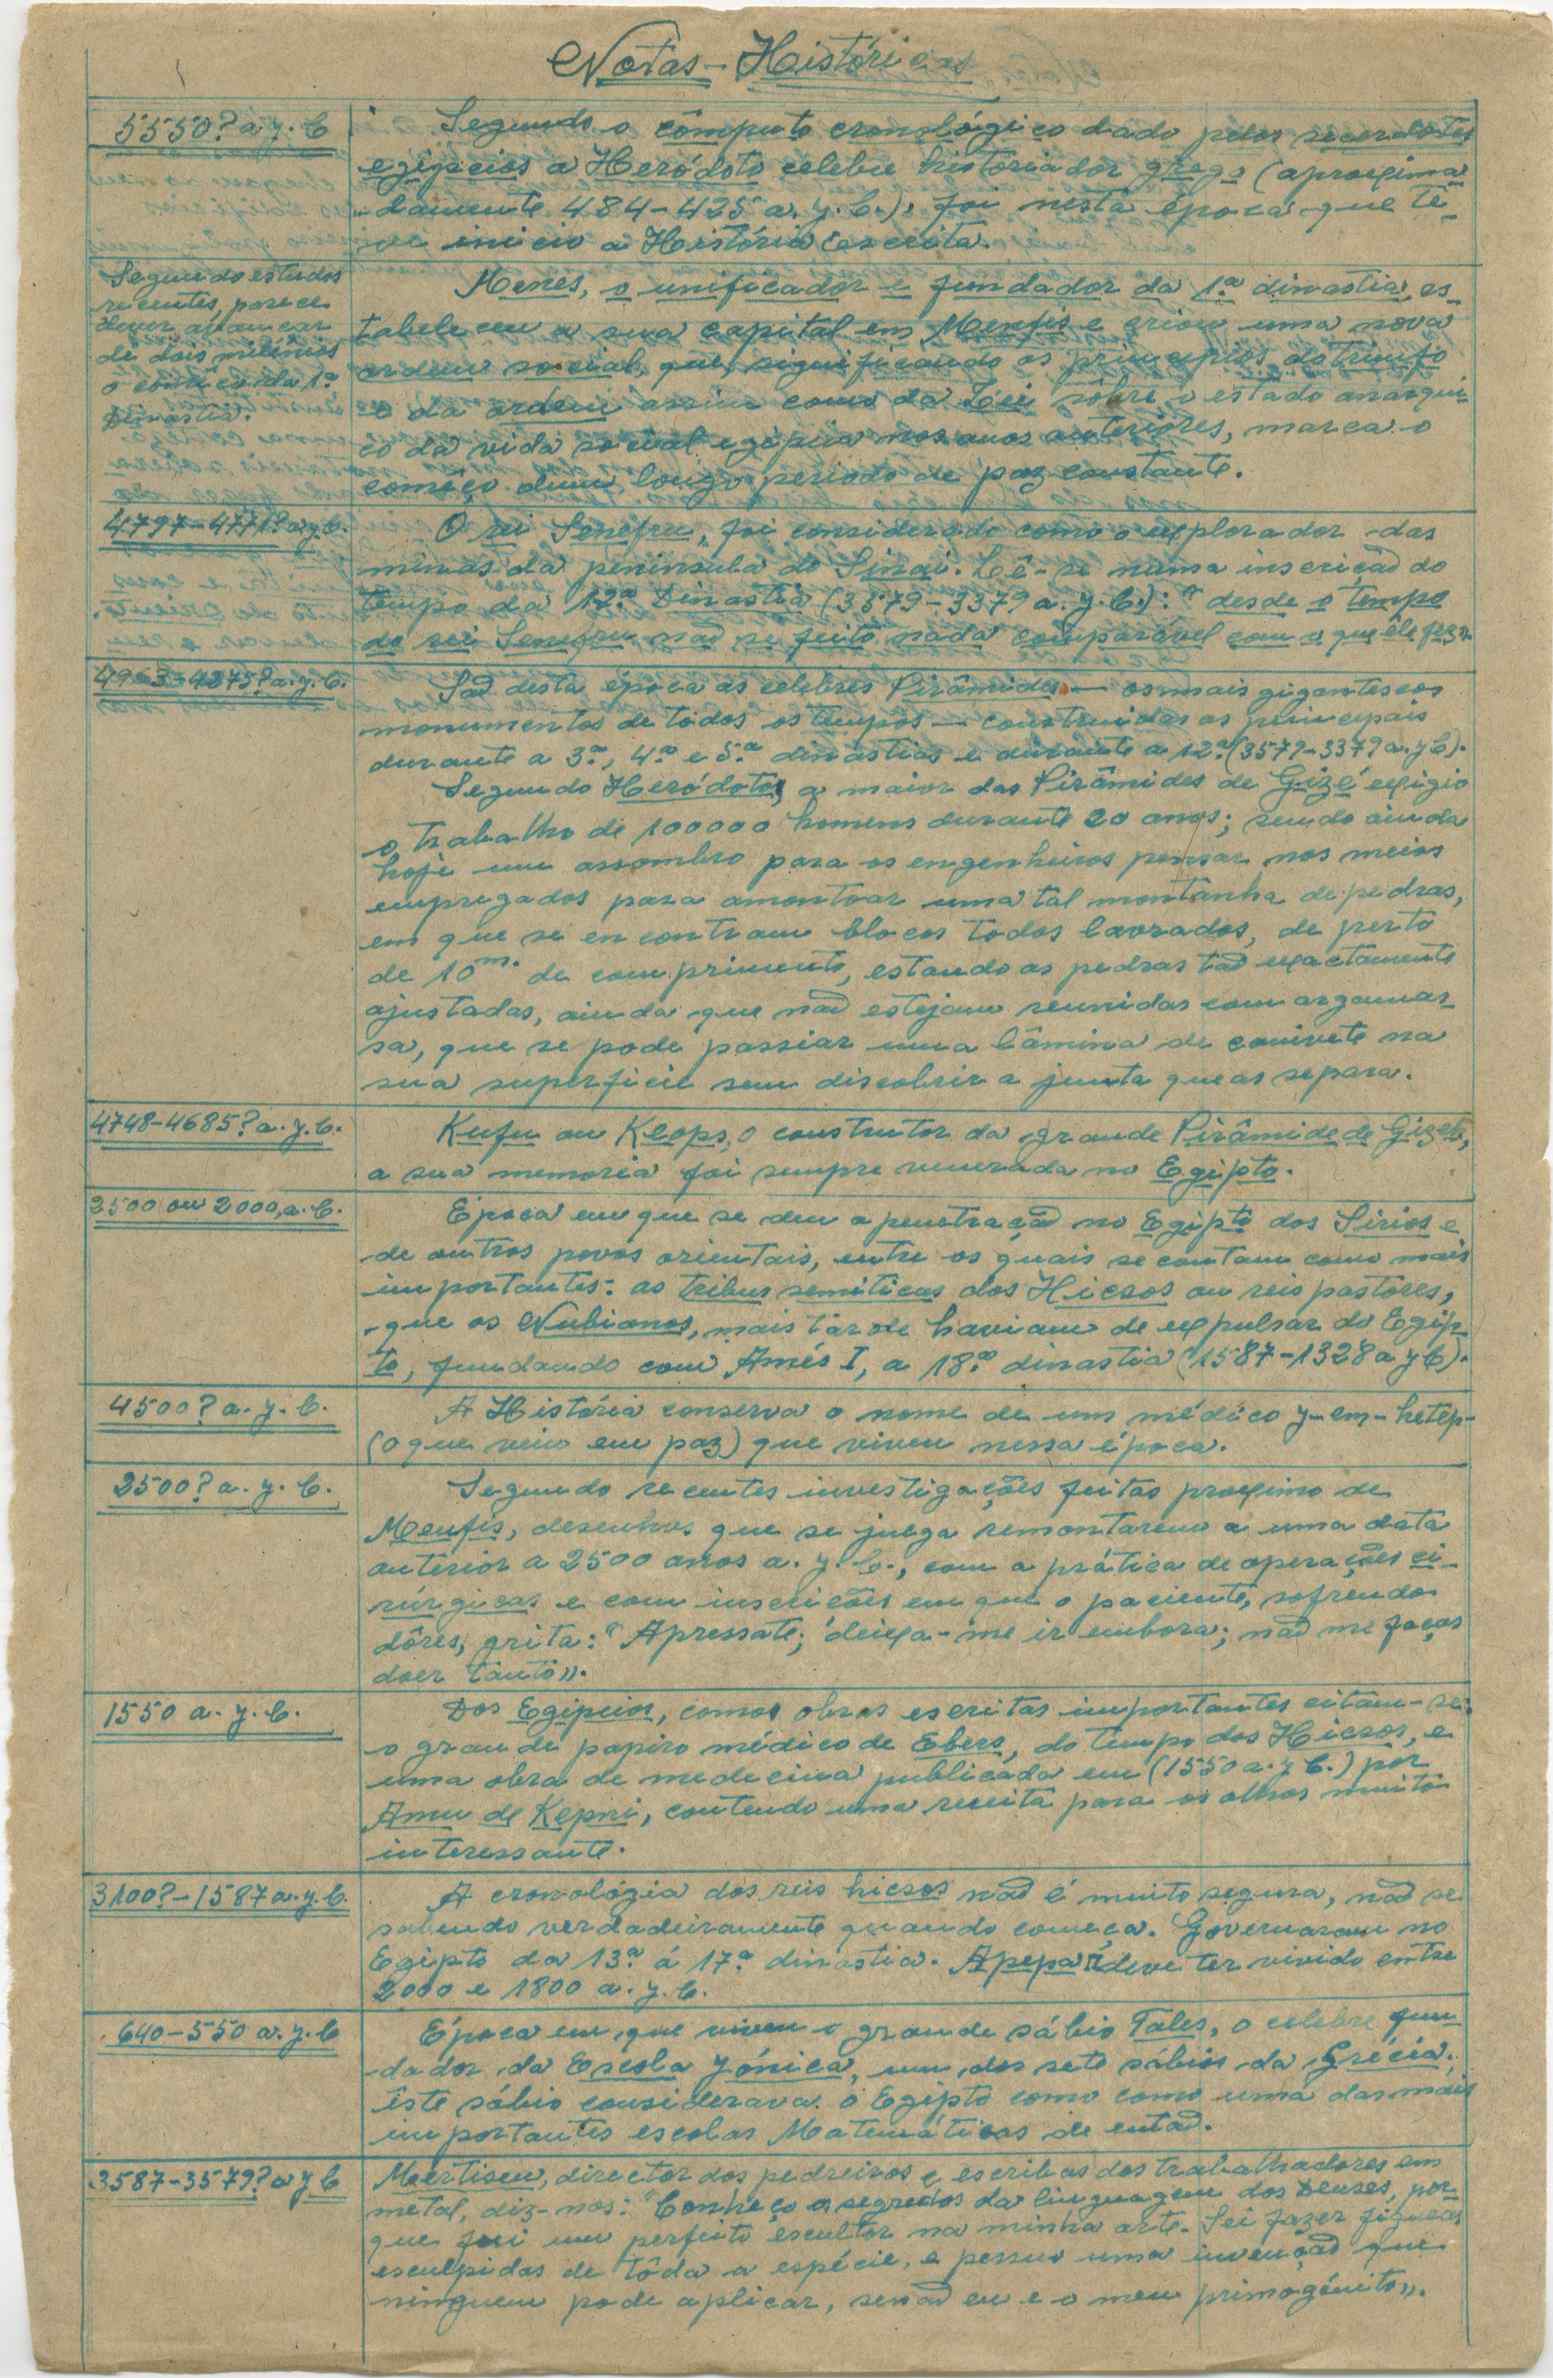 Notas-Históricas
5550? a. J. C
Segundo o cômputo cronológico dado pelos sacerdotes
egípcios a Heródoto celebre historiador grego (aproxima-
damente 484-425 a. J. C.), foi nesta época que te-
ve inicio a História escrita.
Segundo estudos
recentes, parece
dever avançar
de dois milénios
o comêço da 1.ª
Dinastia.
Menes, o unificador e fundador da 1.ª dinastia, es-
tabeleceu a sua capital em Menfis e criou uma nova
ordem social, que, significando os principios do triunfo
e da ordem assim como da Lei sôbre o estado anarqui-
co da vida social egipcia nos anos anteriores, marca o
comêço dum longo periodo de paz constante.
4797-4771? a. J. C.
O rei Senefru, foi considerado como o explorador das
minas da peninsula do Sinai. Lê-se numa inscrição do
tempo da 12.ª Dinastia (3579-3379 a. J. C.): "desde o tempo
do rei Senefru não se feito nada comparável com o que êle fez».
4963-4275? a. J. C.
São desta época as celebres Pirâmides — os mais gigantescos
monumentos de todos os tempos — construidas as principais
durante a 3.ª, 4.ª e 5.ª dinastias e durante a 12.ª (3579-3379 a. J C).
Segundo Heródoto, a maior das Pirâmides de Gizé exigio
o trabalho de 100000 homens durante 20 anos; sendo ainda
hoje um assombro para os engenheiros pensar nos meios
empregados para amontoar uma tal montanha de pedras,
em que se encontram blocos todos lavrados, de perto
de 10 m. de comprimento, estando as pedras tão exactamente
ajustadas, ainda que não estejam reunidas com argamas-
sa, que se pode passiar uma lâmina de canivete na
sua superficie sem discobrir a junta que as separa.
4748-4685? a. J. C.
Kufu ou Keops, o construtor da grande Pirâmide de Gizeh,
a sua memoria foi sempre venerada no Egipto.
2500 ou 2000, a. C.
Época em que se deu a penetração no Egipto dos Sirios e
de outros povos orientais, entre os quais se contam como mais
importantes: as tribus semiticas dos Hicsos ou reis pastores,
que os Nubianos, mais tarde haviam de expulsar do Egip-
to, fundando com Amés I, a 18.ª dinastia (1587-1328 a J C).
4500? a. J. C.
A História conserva o nome de um médico y-em-hetep-
(o que veio em paz) que viveu nessa época.
2500? a. J. C.
Segundo recentes investigações feitas proximo de
Menfis, desenhos que se julga remontarem a uma data
anterior a 2500 anos a. J. C., com a prática de operações ci-
rúrgicas e com inscrições em que o paciente, sofrendo
dôres, grita: "Apressate; deixa-me ir embora; não me faças
doer tanto».
1550 a. J. C.
Dos Egipcios, como obras escritas importantes citam-se:
o grande papiro médico de Ebers, do tempo dos Hicsos, e
uma obra de medecina publicada em (1550 a. J C.) por
Amu de Kepni, contendo uma receita para os olhos muito
interessante.
3100?-1587 a. J. C.
A cronológia dos reis hicsos não é muito segura, não se
sabendo verdadeiramente quando começa. Governaram no
Egipto da 13.ª á 17.ª dinastia. Apepa I deve ter vivido entre
2000 e 1800 a. J. C.
640-550 a. J. C
Época em que viveu o grande sábio Tales, o celebre fun-
dador da Escola Jónica, um dos sete sábios da Grécia;
êste sábio considerava o Egipto como como uma das mais
importantes escolas Matemáticas de então.
3587-3579? a J C
Mertisen, director dos pedreiros e escribas dos trabalhadores em
metal, diz-nos: "Conheço os segredos da linguagem dos Deuses, por-
que fui um perfeito escultor na minha arte. Sei fazer figuras
esculpidas de tôda a espécie, e possuo uma invenção que
ninguem pode aplicar, senão eu e o meu primogénito».